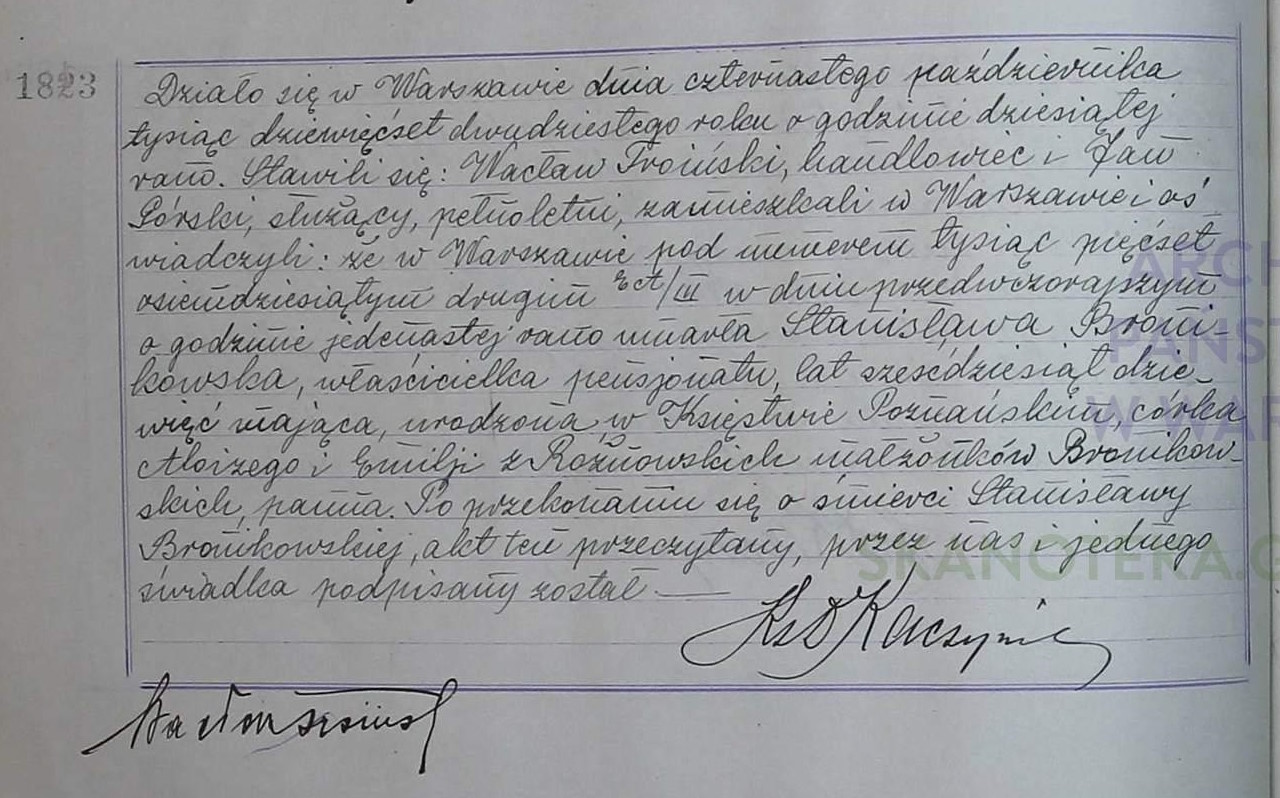 1823
Działo się w Warszawie dnia czternastego października
tysiąc dziewięćset dwudziestego roku o godzinie dziesiątej
rano. Stawili się: Wacław Troiński, handlowiec i Jan
Górski, służący, pełnoletni, zamieszkali w Warszawie i oś
wiadczyli: że w Warszawie pod numerem tysiąc pięćset
osiemdziesiątym drugim /III w dniu przedwczorajszym
o godzinie jedenastej rano umarła Stanisława Broni-
kowska, właścicielka pensjonatu, lat sześćdziesiąt dzie-
więć mająca, urodzona w Księstwie Poznańskim, córka
Aloizego i Emilji z Rożnowskich małżonków Bronikow-
skich, panna. Po przekonaniu się o śmierci Stanisławy
Bronikowskiej, akt ten przeczytany, przez nas i jednego
świadka podpisany został —
Ks
ARCH
PAŃST
W WAR
SKANOTERA.G